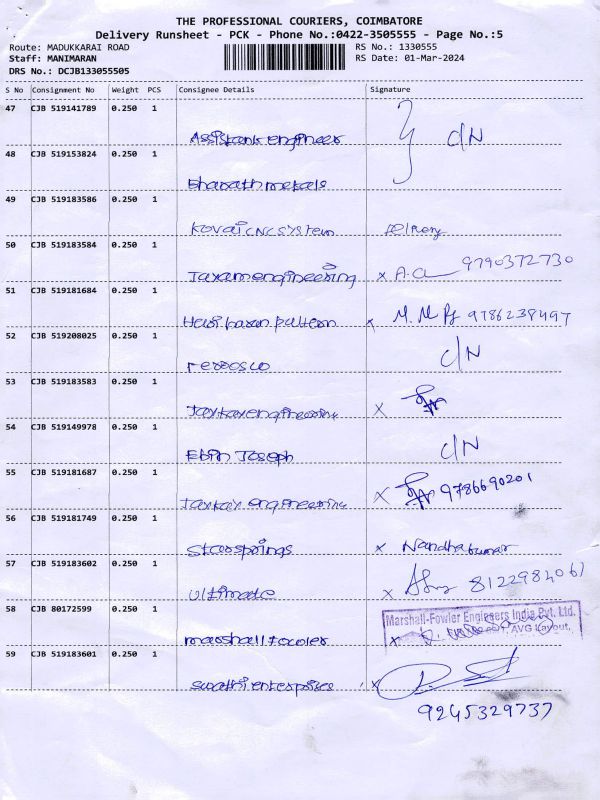 THE PROFESSIONAL COURIERS, COIMBATORE
Delivery Runsheet - PCK - Phone No.:0422-3505555 - Page No.:5
Route: MADUKKARAI ROAD RS No.: 1330555
Staff: MANIMARAN RS Date: 01-Mar-2024
DRS No.: DCJB133055505
S No Consignment No Weight PCS Consignee Details Signature
47 CJB 519141789 0.250 1
Assistant engineer C/N
48 CJB 519153824 0.250 1
Bharath metals
49 CJB 519183586 0.250 1
Kovai CNC System
50 CJB 519183584 0.250 1
Jaxam engineering x A.a 9790372730
51 CJB 519181684 0.250 1
Hari haran pattern x M.M 9786238497
52 CJB 519208025 0.250 1
C/N
53 CJB 519183583 0.250 1
Jaykay engineering x
54 CJB 519149978 0.250 1
Ebin Joseph C/N
55 CJB 519181687 0.250 1
Jaykay engineering x 9786690201
56 CJB 519181749 0.250 1
Star springs x Nandhakumar
57 CJB 519183602 0.250 1
Ultimate x 8122984061
58 CJB 80172599 0.250 1
Marshall-Fowler Engineers India Pvt. Ltd.
AVG Layout,
marshall fowler x
59 CJB 519183601 0.250 1
Swathi enterprises x
9245329737